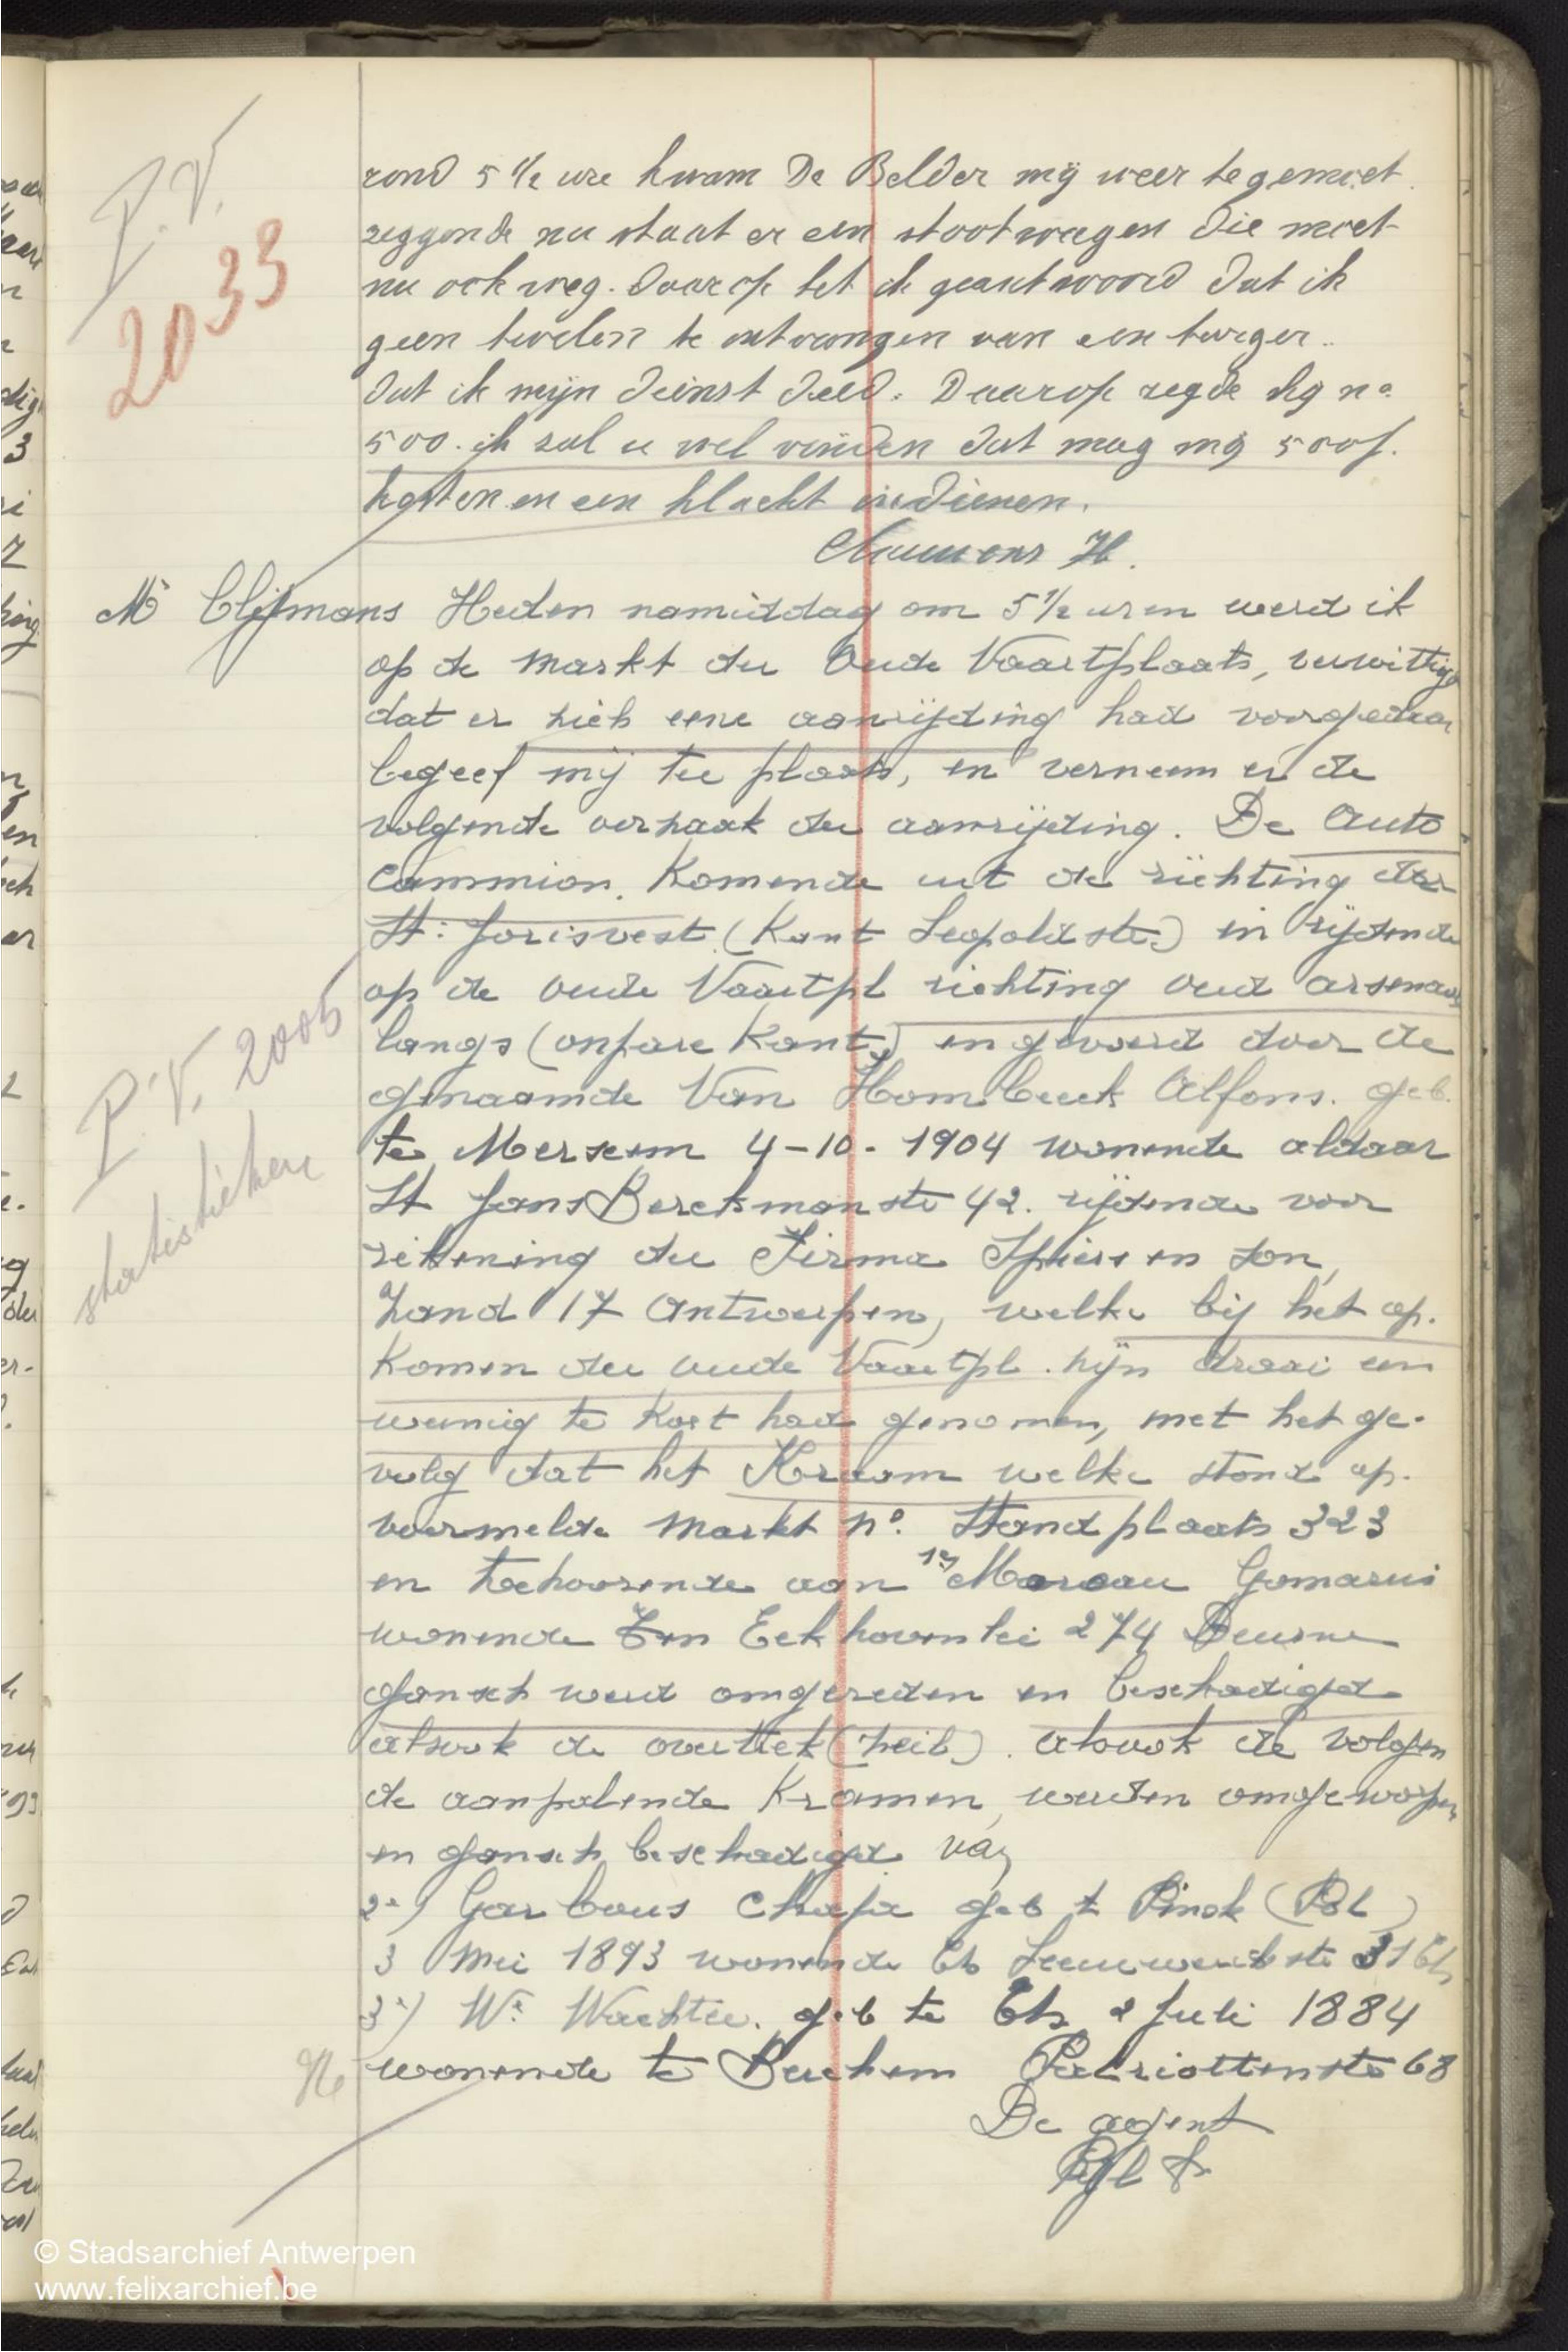 P.V.
2033
rond 5 1/2 ure kwam De Belder mij weer tegemoet
zeggende nu staat er een stootwagen die moet
nu ook weg. Daarop het ik geantwoord dat ik
geen bevelen te ontvangen van een burger..
dat ik mijn dienst deed. Daarop zegde hij n°
500. ik zal u wel vinden dat mag mij 500f.
kosten en een klacht indienen.
H.
Heden namiddag om 5 1/2 uren werd ik
op de markt der Oude Vaartplaats, verwittigd
dat er zich eene aanrijding had voorgedaan
begeef mij ter plaats, en verneem er de
volgende oorzaak der aanrijding. De Auto
Cammion. Komende uit de richting der
St: Jorisvest (Kant Leopoldstr.) in rijdende
op de oude Vaartpl richting oud arsenaal
langs (onpare Kant) en gevoerd door de
genaamde Van Hombeeck Alfons. geb.
te Merxem 4-10-1904 wonende aldaar
St Jans Berchmanstr 42. rijdende voor
rekening der Firma Spiers en Zon,
Zand 17 Antwerpen, welke bij het op.
komen der oude Vaartpl. zijn draai een
weinig te kort had genomen, met het ge-
volg dat het Kraam welke stond op.
voormelde markt n°. Standplaats 323
en toehoorende aan 1°) Moreau Gomarus
wonende Ten Eekhovenlei 274 Deurne
gansch werd omgereden en beschadigd
alsook de overtrek (zeil). alsook de volgen
de aanpalende Kramen, werden omgeworpen
en gansch beschadigd van
2°) Garbous Chapa geb t Pinsk (Pol)
3 Mei 1893 wonende Leeuwerikstr 31
3°) We Wachter. geb te 2 Juli 1884
wonende te Berchem Patriottenstr 68
De agent
P.V. 2005
statistieken
© Stadsarchief Antwerpen
www.felixarchief.be